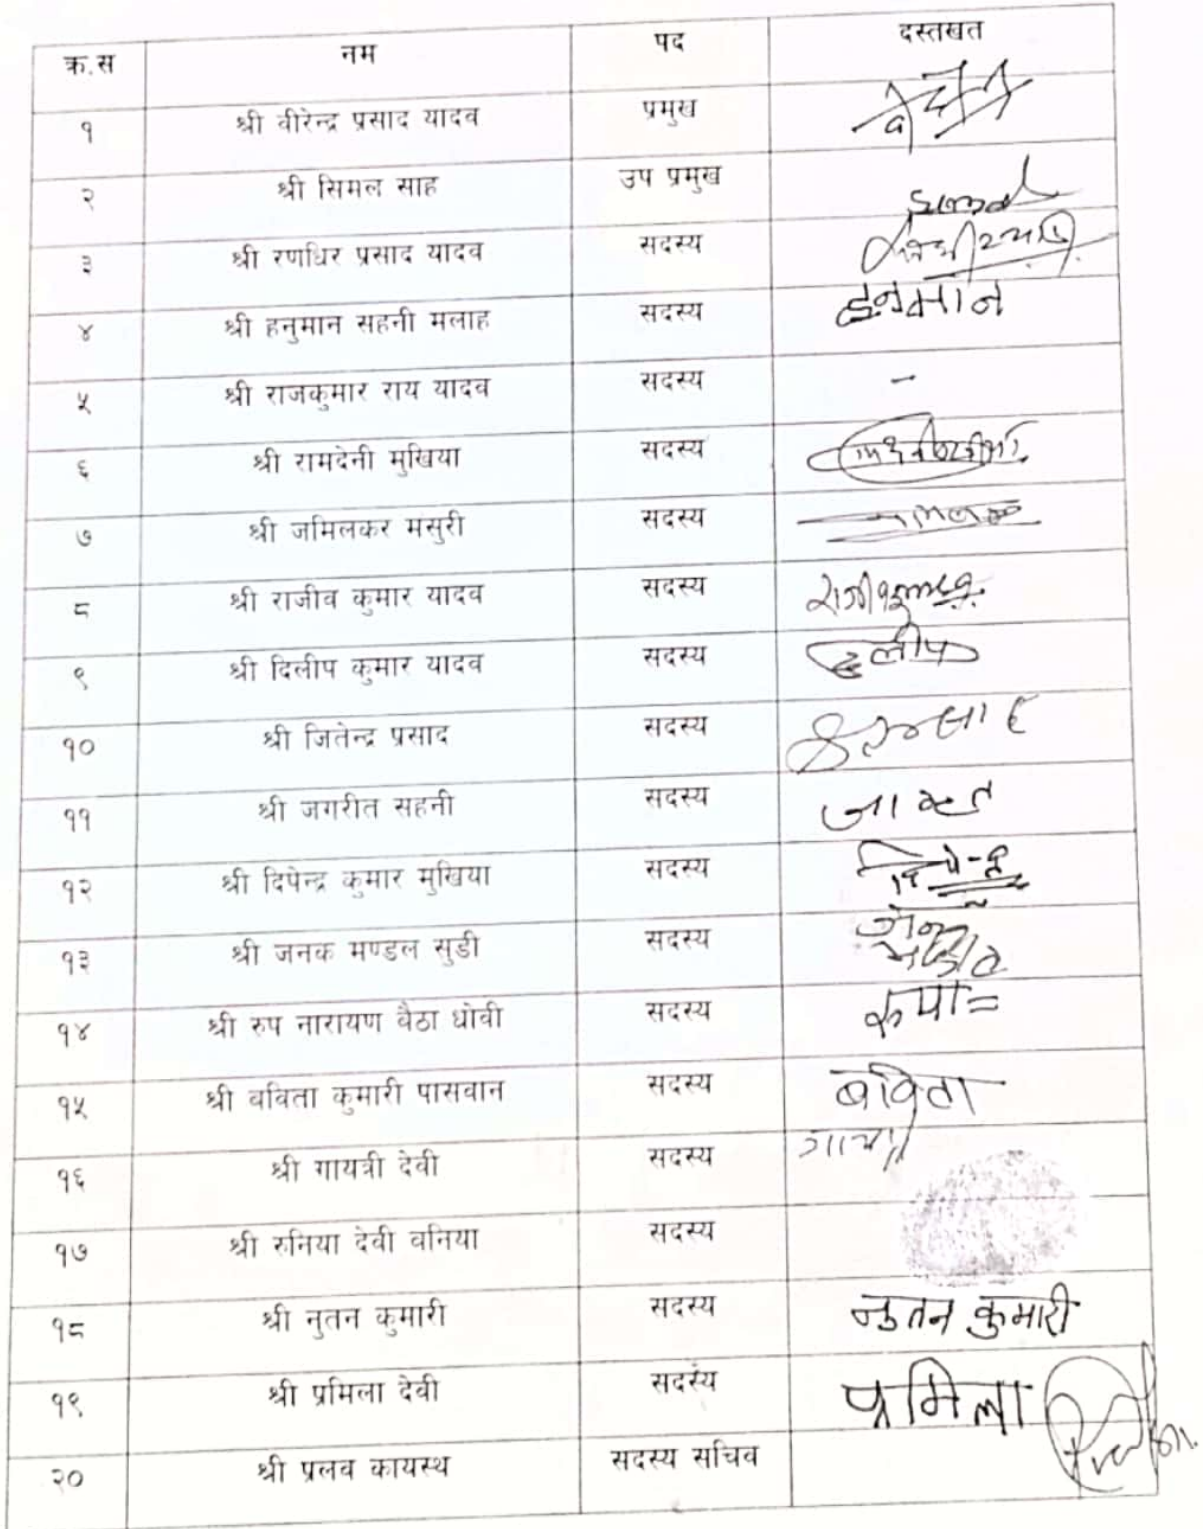 क्र.स नम पद दस्तखत
१ श्री वीरेन्द्र प्रसाद यादव प्रमुख
२ श्री सिमल साह उप प्रमुख
३ श्री रणधिर प्रसाद यादव सदस्य
४ श्री हनुमान सहनी मलाह सदस्य हनुमान
५ श्री राजकुमार राय यादव सदस्य -
६ श्री रामदेनी मुखिया सदस्य
७ श्री जमिलकर मंसुरी सदस्य
८ श्री राजीव कुमार यादव सदस्य
९ श्री दिलीप कुमार यादव सदस्य दिलीप
१० श्री जितेन्द्र प्रसाद सदस्य
११ श्री जगरीत सहनी सदस्य
१२ श्री दिपेन्द्र कुमार मुखिया सदस्य
१३ श्री जनक मण्डल सुडी सदस्य
१४ श्री रुप नारायण बैठा धोवी सदस्य
१५ श्री बविता कुमारी पासवान सदस्य बविता
१६ श्री गायत्री देवी सदस्य
१७ श्री रुनिया देवी वनिया सदस्य
१८ श्री नुतन कुमारी सदस्य नुतन कुमारी
१९ श्री प्रमिला देवी सदस्य प्रमिला
२० श्री प्रलव कायस्थ सदस्य सचिव